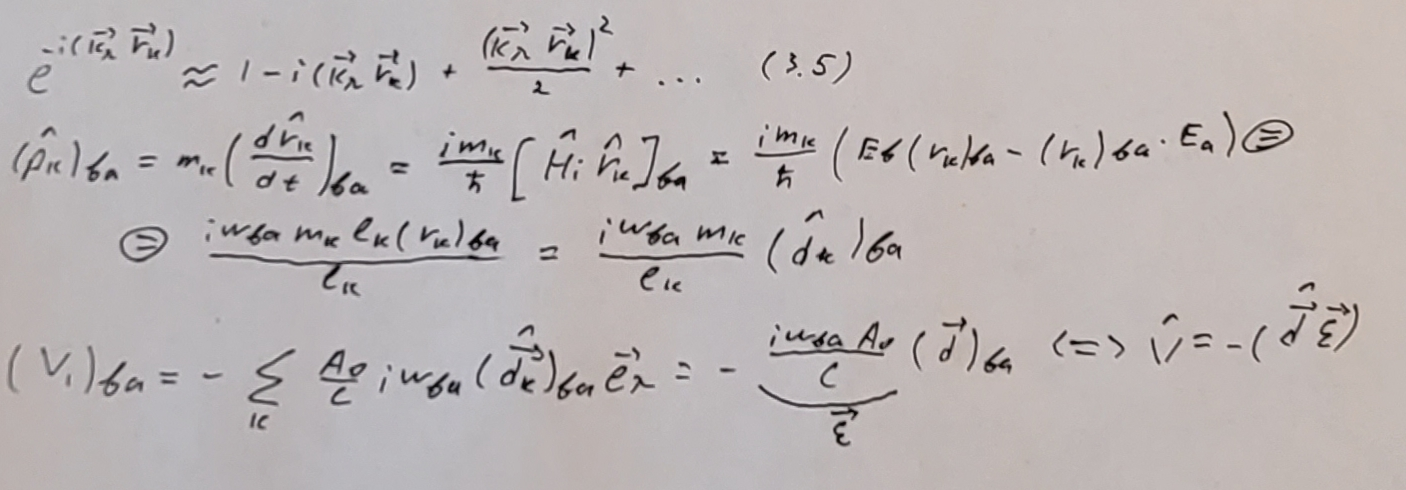 e^{-i(\vec{k_λ} \vec{r_k})} ≈ 1 - i(\vec{k_λ} \vec{r_k}) + \frac{(\vec{k_λ} \vec{r_k})^2}{2} + ... (3.5)
(\hat{p}_k)_{ba} = m_k (\frac{d\hat{r}_k}{dt})_{ba} = \frac{i m_k}{ħ} [\hat{H}_i \hat{r}_k]_{ba} = \frac{i m_k}{ħ} (E_b (r_k)_{ba} - (r_k)_{ba} · E_a) ⊜
⊜ \frac{i w_{ba} m_k e_k (r_k)_{ba}}{e_k} = \frac{i w_{ba} m_k}{e_k} (\hat{d}_k)_{ba}
(V_1)_{ba} = - \sum_k \frac{A_0}{c} i w_{ba} (\hat{\vec{d}}_k)_{ba} \vec{e}_λ = - \underbrace{\frac{i w_{ba} A_0}{c}}_{\vec{ε}} (\vec{d})_{ba} <=> \hat{V} = -(\hat{\vec{d}} \vec{ε})